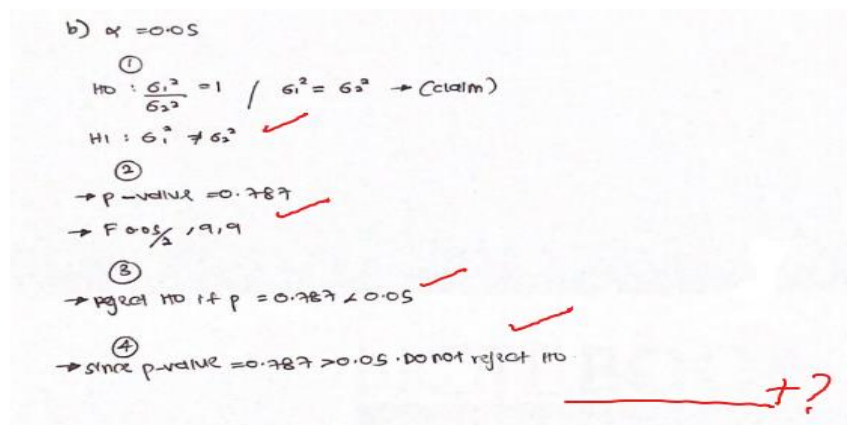 b) α = 0.05
①
H0 : σ₁²/σ₂² = 1 / σ₁² = σ₂² → (claim)
H1 : σ₁² ≠ σ₂²
②
→ p-value = 0.787
→ F 0.05/2 , 9, 9
③
→ reject H0 if p = 0.787 < 0.05
④
→ since p-value = 0.787 > 0.05 . Do not reject H0.
+?